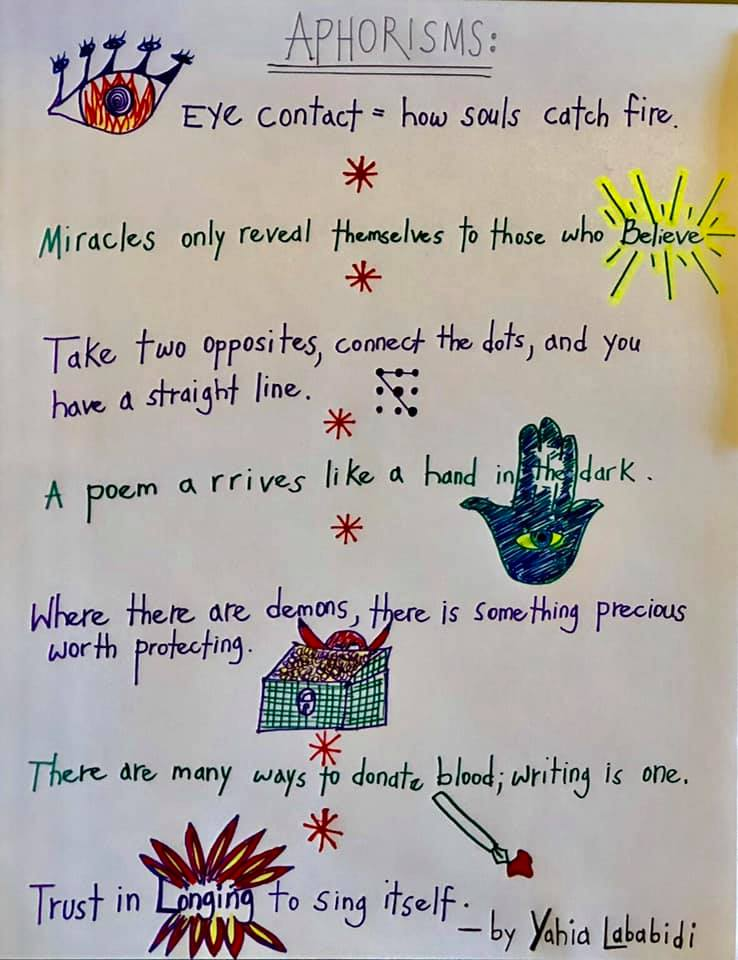 APHORISMS:
Eye contact = how souls catch fire.
Miracles only reveal themselves to those who Believe
Take two opposites, connect the dots, and you
have a straight line.
A poem arrives like a hand in the dark.
Where there are demons, there is something precious
worth protecting.
There are many ways to donate blood; writing is one.
Trust in Longing to sing itself.
— by Yahia Lababidi